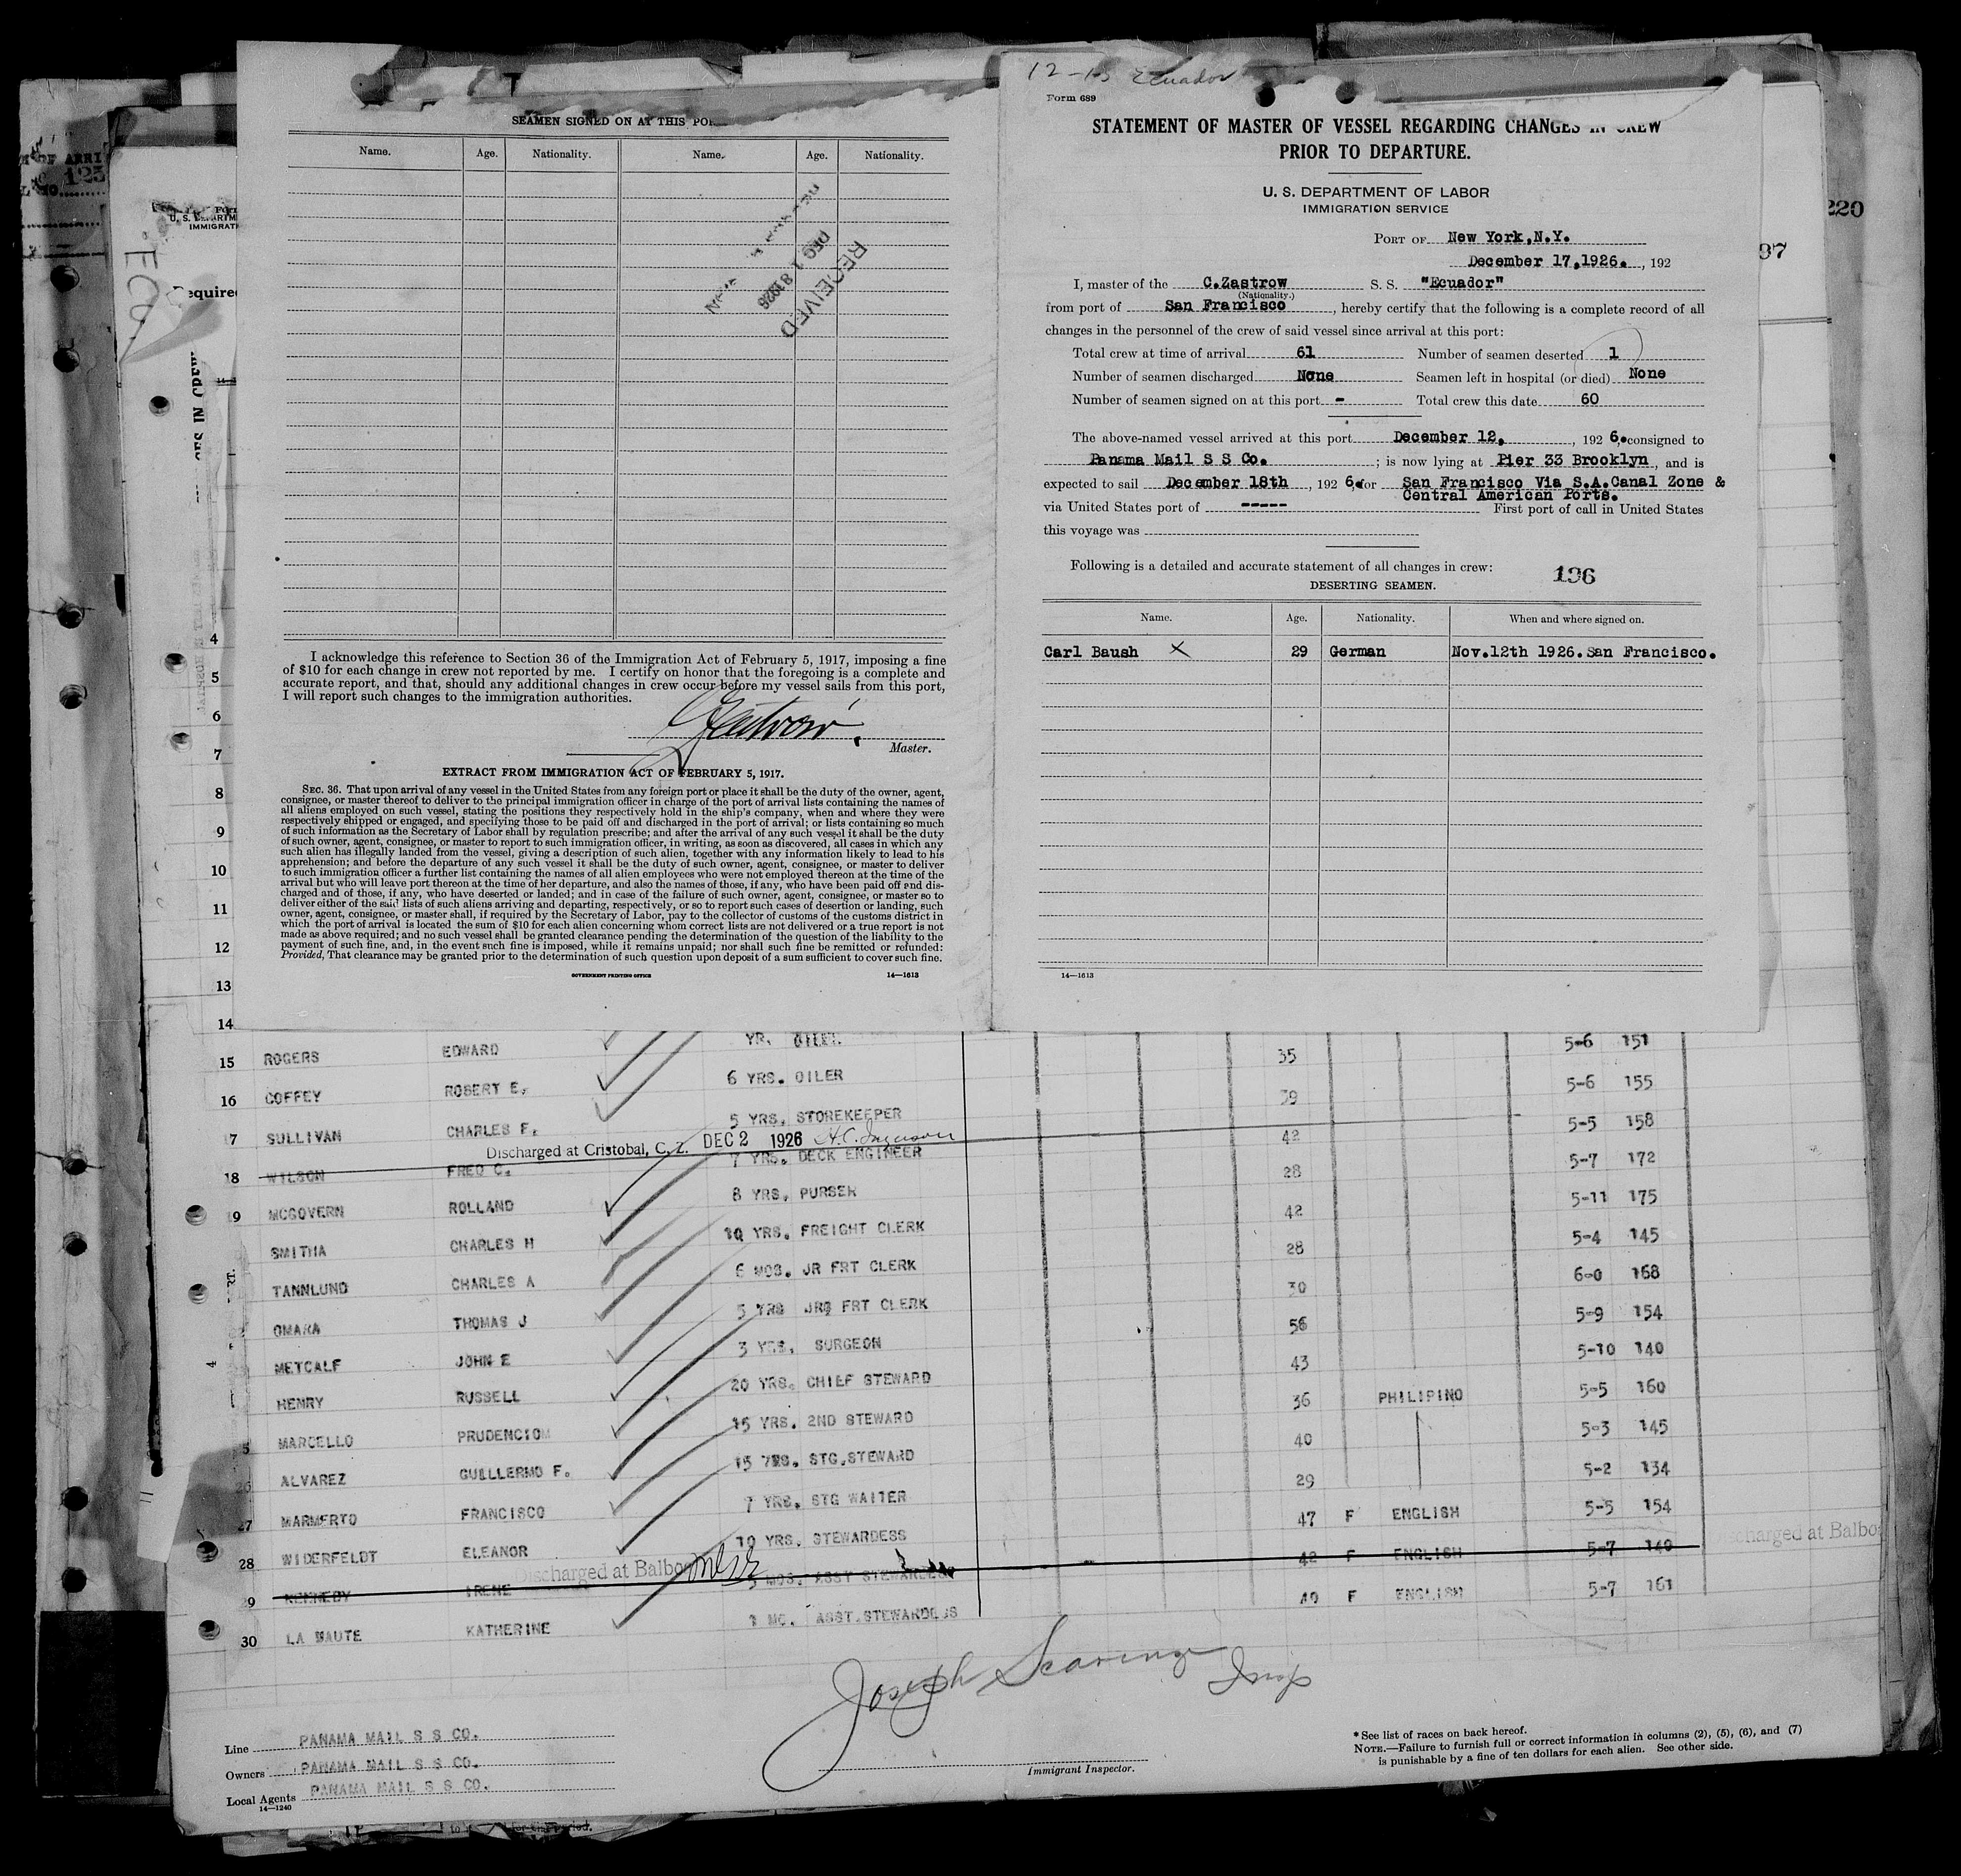 SEAMEN SIGNED ON AT THIS
Name. Age. Nationality. Name. Age. Nationality.
RECEIVED
DEC 18 1926
I acknowledge this reference to Section 36 of the Immigration Act of February 5, 1917, imposing a fine
of $10 for each change in crew not reported by me. I certify on honor that the foregoing is a complete and
accurate report, and that, should any additional changes in crew occur before my vessel sails from this port,
I will report such changes to the immigration authorities.
Master.
EXTRACT FROM IMMIGRATION ACT OF FEBRUARY 5, 1917.
SEC. 36. That upon arrival of any vessel in the United States from any foreign port or place it shall be the duty of the owner, agent,
consignee, or master thereof to deliver to the principal immigration officer in charge of the port of arrival lists containing the names of
all aliens employed on such vessel, stating the positions they respectively hold in the ship's company, when and where they were
respectively shipped or engaged, and specifying those to be paid off and discharged in the port of arrival; or lists containing so much
of such information as the Secretary of Labor shall by regulation prescribe; and after the arrival of any such vessel it shall be the duty
of such owner, agent, consignee, or master to report to such immigration officer, in writing, as soon as discovered, all cases in which any
such alien has illegally landed from the vessel, giving a description of such alien, together with any information likely to lead to his
apprehension; and before the departure of any such vessel it shall be the duty of such owner, agent, consignee, or master to deliver
to such immigration officer a further list containing the names of all alien employees who were not employed thereon at the time of the
arrival but who will leave port thereon at the time of her departure, and also the names of those, if any, who have been paid off and dis-
charged and of those, if any, who have deserted or landed; and in case of the failure of such owner, agent, consignee, or master so to
deliver either of the said lists of such aliens arriving and departing, respectively, or so to report such cases of desertion or landing, such
owner, agent, consignee, or master shall, if required by the Secretary of Labor, pay to the collector of customs of the customs district in
which the port of arrival is located the sum of $10 for each alien concerning whom correct lists are not delivered or a true report is not
made as above required; and no such vessel shall be granted clearance pending the determination of the question of the liability to the
payment of such fine, and, in the event such fine is imposed, while it remains unpaid; nor shall such fine be remitted or refunded:
Provided, That clearance may be granted prior to the determination of such question upon deposit of a sum sufficient to cover such fine.
GOVERNMENT PRINTING OFFICE 14—1613
Ecuador
Form 689
STATEMENT OF MASTER OF VESSEL REGARDING CHANGES IN CREW
PRIOR TO DEPARTURE.
U. S. DEPARTMENT OF LABOR
IMMIGRATION SERVICE
PORT OF New York, N.Y.
December 17, 1926. , 192
I, master of the C.Zastrow S. S. "Ecuador"
(Nationality.)
from port of San Francisco , hereby certify that the following is a complete record of all
changes in the personnel of the crew of said vessel since arrival at this port:
Total crew at time of arrival 61 Number of seamen deserted 1
Number of seamen discharged None Seamen left in hospital (or died) None
Number of seamen signed on at this port - Total crew this date 60
The above-named vessel arrived at this port December 12, , 192 6, consigned to
Panama Mail S S Co. ; is now lying at Pier 33 Brooklyn , and is
expected to sail December 18th , 192 6, for San Francisco Via S.A.Canal Zone &
Central American Ports.
via United States port of ----- First port of call in United States
this voyage was
Following is a detailed and accurate statement of all changes in crew:
196
DESERTING SEAMEN.
Name. Age. Nationality. When and where signed on.
Carl Baush X 29 German Nov.12th 1926.San Francisco.
14—1613
220
4
5
6
7
8
9
10
11
12
13
14
15 ROGERS EDWARD YR. OILER 35 5-6 151
16 COFFEY ROBERT E. 6 YRS. OILER 39 5-6 155
7 SULLIVAN CHARLES F. 5 YRS. STOREKEEPER 42 5-5 158
Discharged at Cristobal, C. Z. DEC 2 1926
18 WILSON FRED C. 7 YRS. DECK ENGINEER 28 5-7 172
9 MCGOVERN ROLLAND 8 YRS. PURSER 42 5-11 175
SMITHA CHARLES H 10 YRS. FREIGHT CLERK 28 5-4 145
TANNLUND CHARLES A 6 MOS. JR FRT CLERK 30 6-0 168
OMARA THOMAS J 5 YRS JR FRT CLERK 56 5-9 154
METCALF JOHN E 3 YRS. SURGEON 43 5-10 140
HENRY RUSSELL 20 YRS. CHIEF STEWARD 36 PHILIPINO 5-5 160
5 MARCELLO PRUDENCIO 15 YRS. 2ND STEWARD 40 5-3 145
26 ALVAREZ GUILLERMO F. 15 YRS. STG.STEWARD 29 5-2 134
27 MARMERTO FRANCISCO 7 YRS. STG WAITER 47 F ENGLISH 5-5 154
28 WIDERFELDT ELEANOR 10 YRS. STEWARDESS 42 F ENGLISH 5-7 140
Discharged at Balbo
Discharged at Balbo
29 KENNEDY IRENE 5 MOS. ASST STEWARDESS 40 F ENGLISH 5-7 161
30 LA HAUTE KATHERINE 1 MO. ASST.STEWARDESS
Joseph Scaringe Insp
Immigrant Inspector.
Line PANAMA MAIL S S CO.
Owners PANAMA MAIL S S CO.
Local Agents PANAMA MAIL S S CO.
14—1240
* See list of races on back hereof.
NOTE.—Failure to furnish full or correct information in columns (2), (5), (6), and (7)
is punishable by a fine of ten dollars for each alien. See other side.